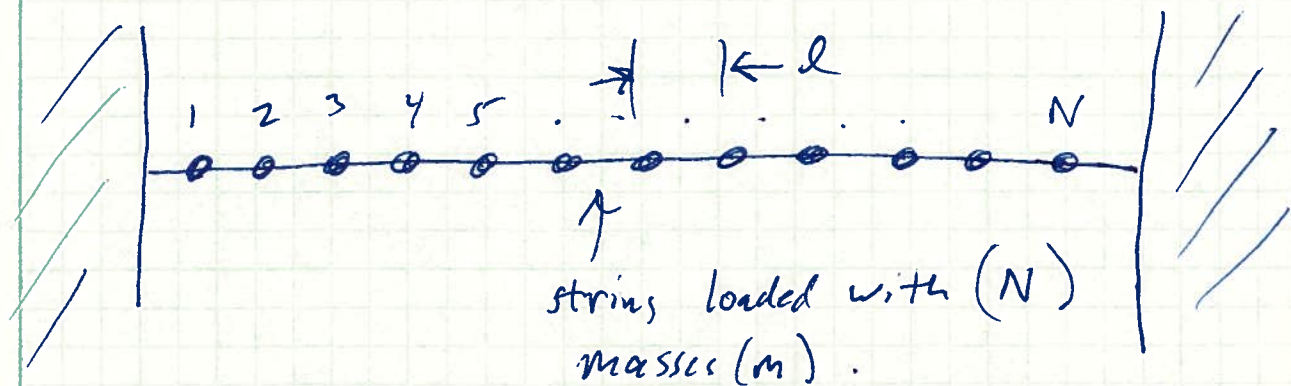 l
1 2 3 4 5 . . . . . . N
string loaded with (N)
masses (m) .